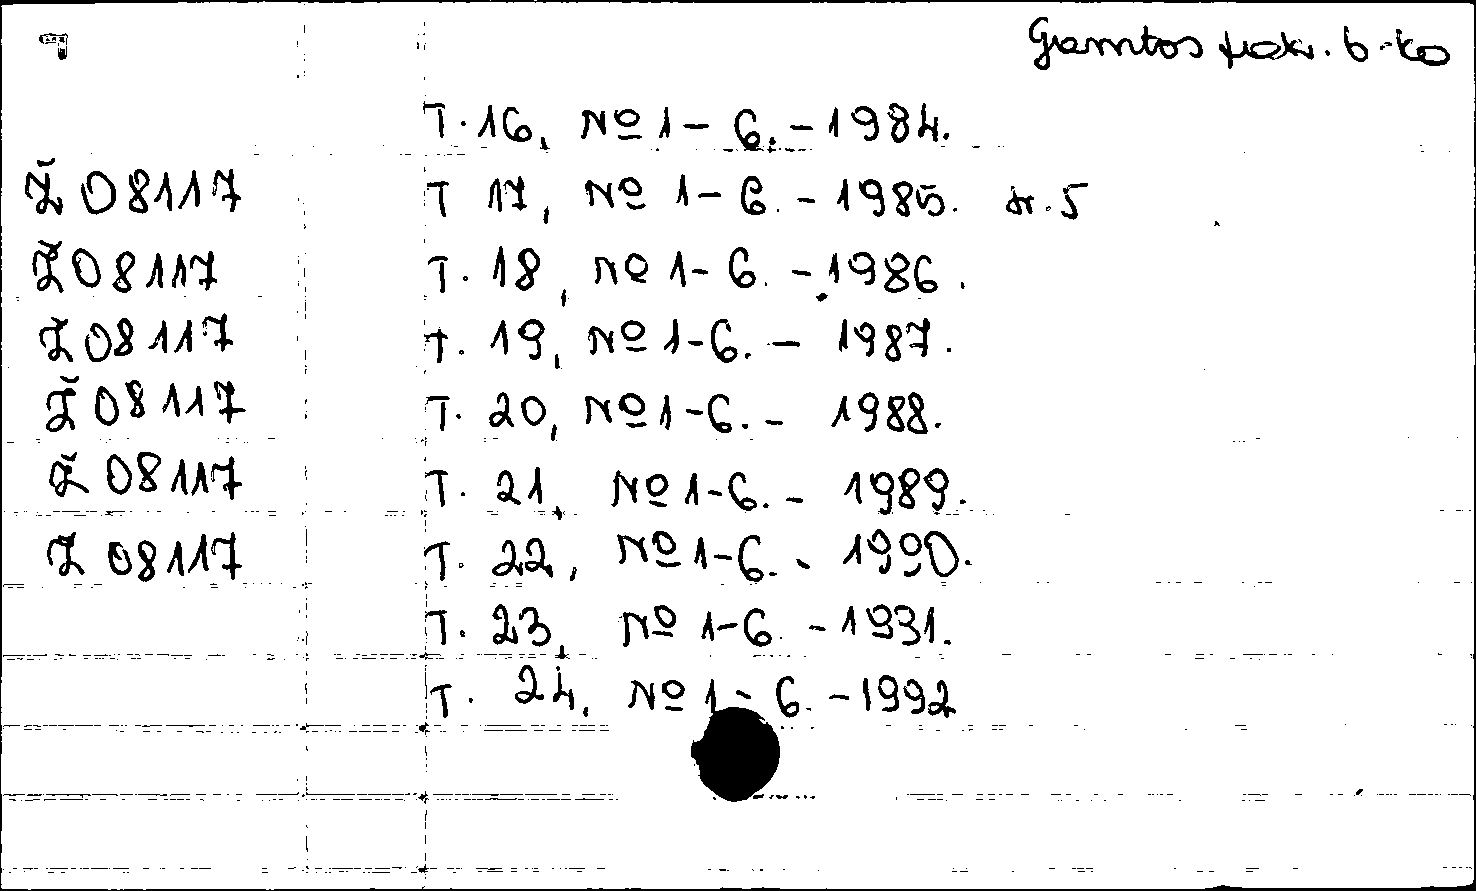 Gamtos fak. b-ka
T. 16, № 1-6. - 1984.
Ž 08117 T 17, № 1-6. - 1985. nr. 5
Ž 08117 T. 18, № 1-6. - 1986.
Ž 08117 T. 19, № 1-6. - 1987.
Ž 08117 T. 20, № 1-6. - 1988.
Ž 08117 T. 21, № 1-6. - 1989.
Ž 08117 T. 22, № 1-6. - 1990.
T. 23, № 1-6 - 1991.
T. 24, № 1-6. - 1992